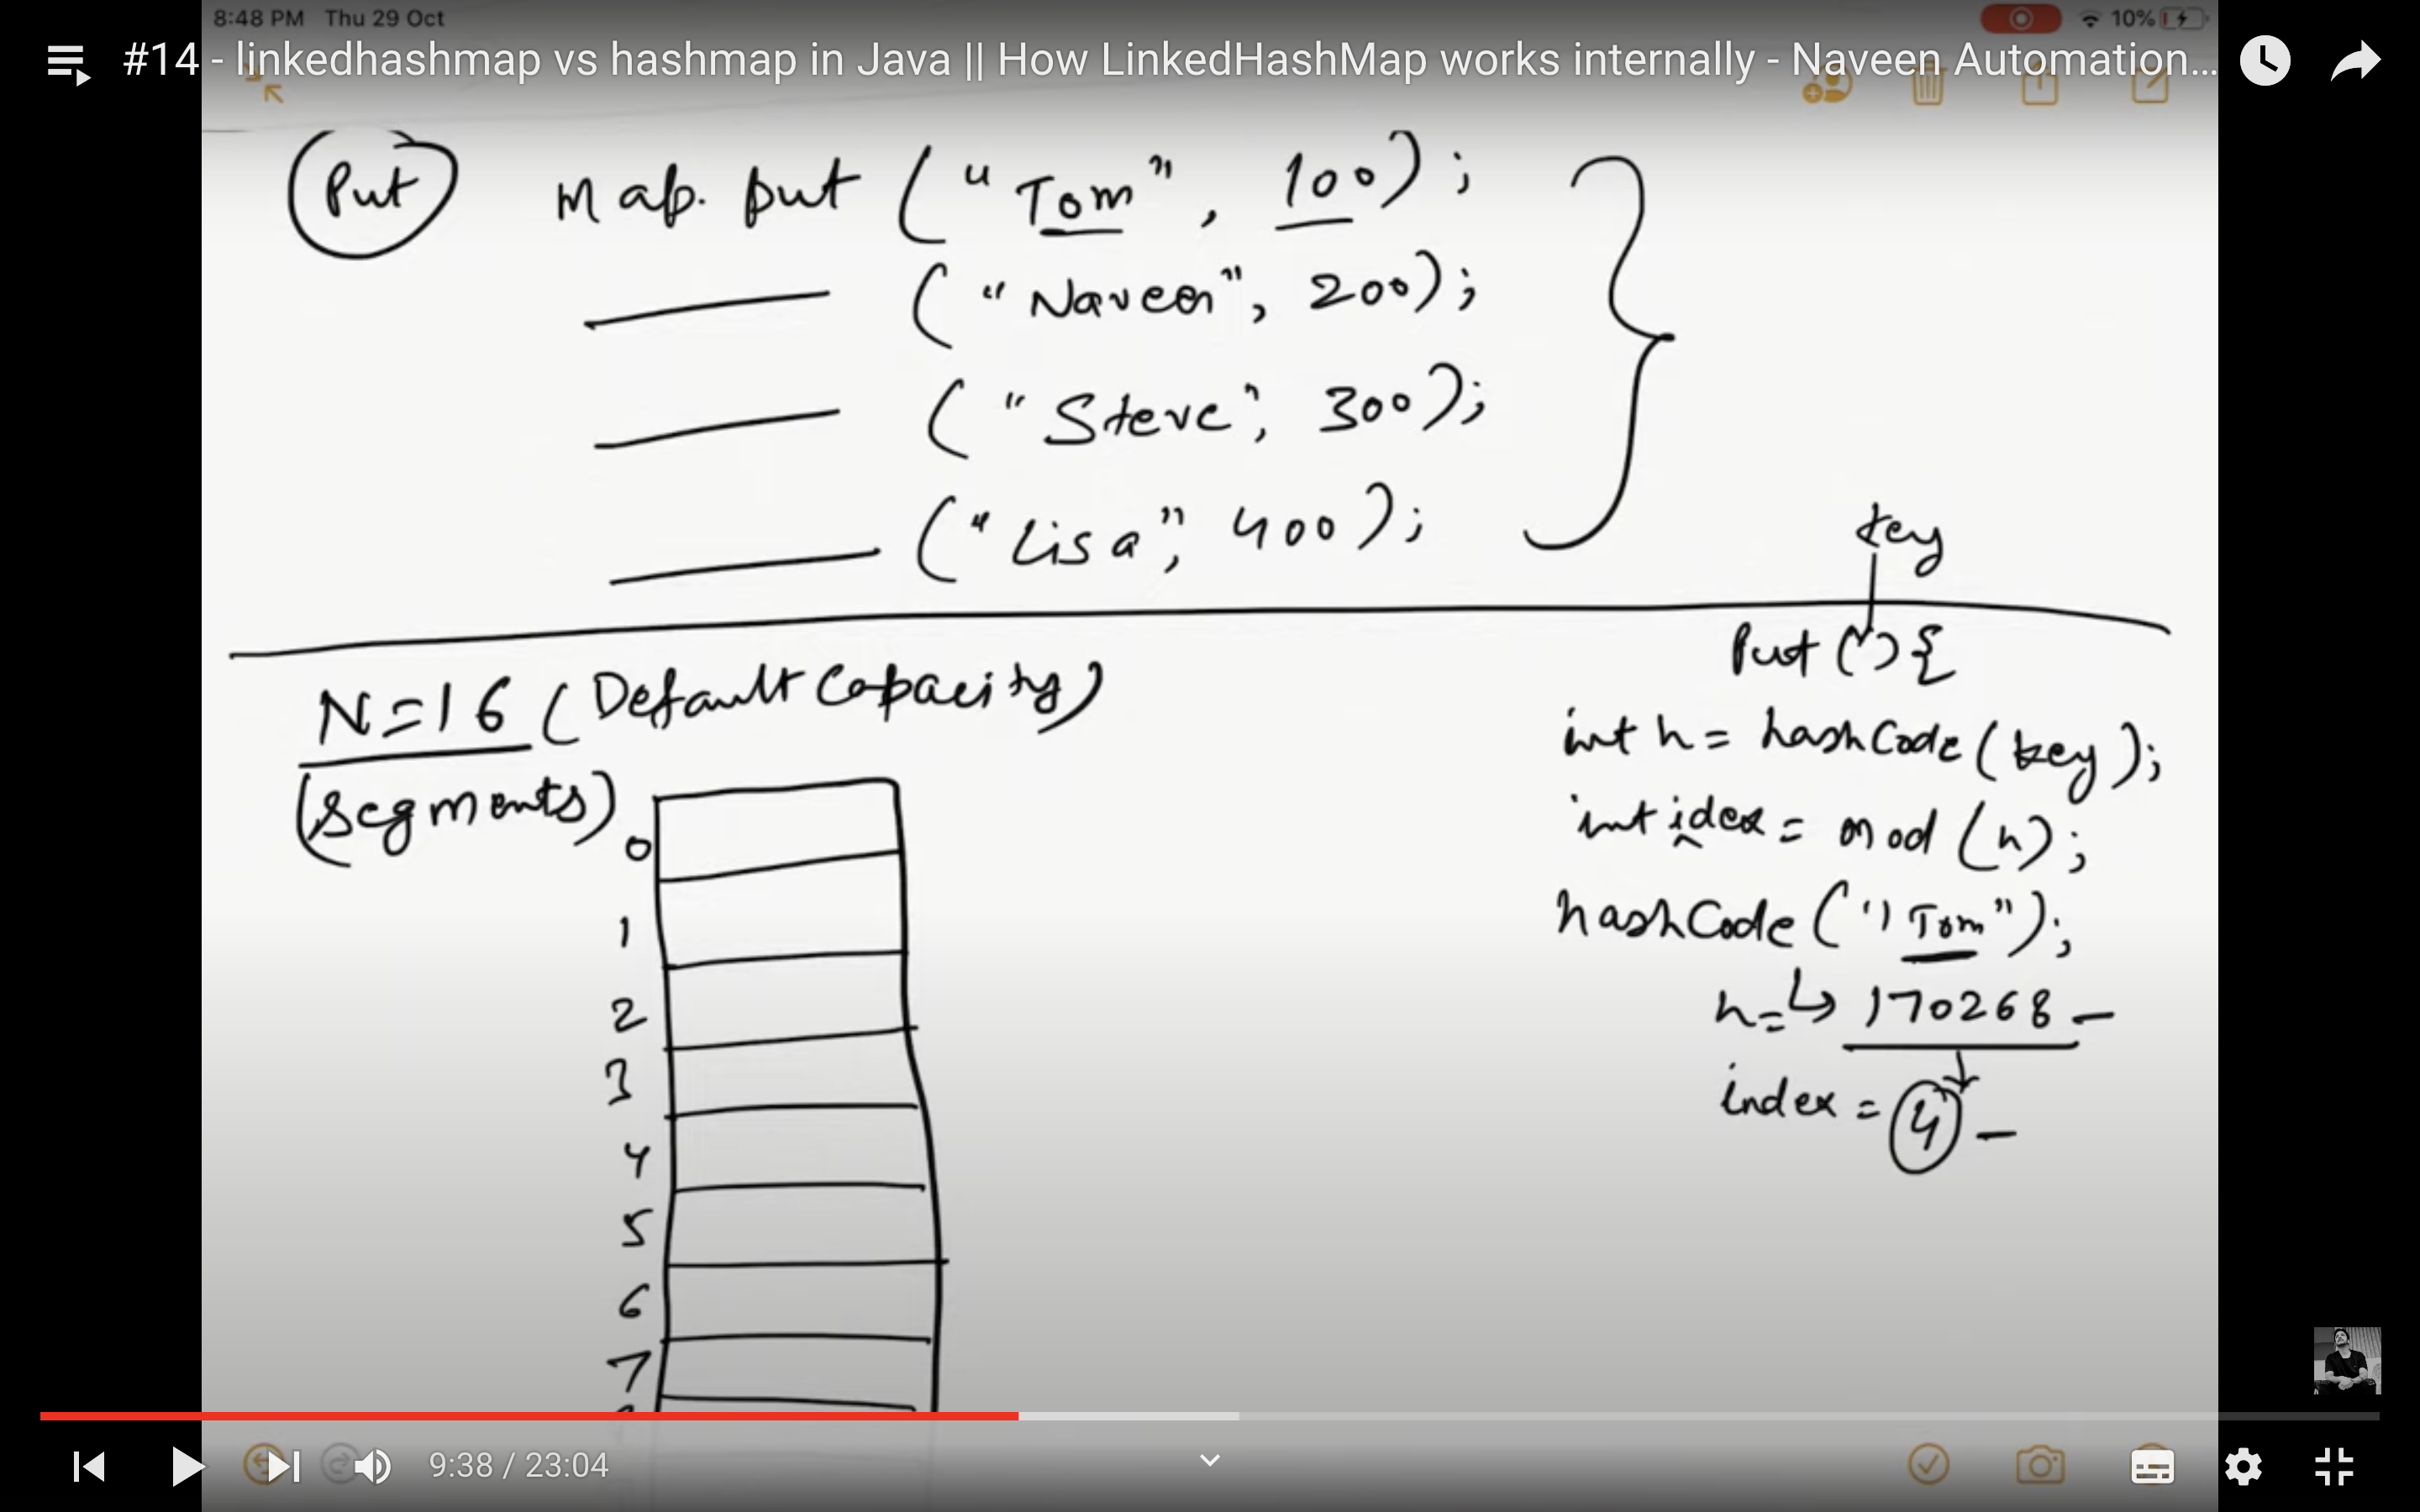 8:48 PM Thu 29 Oct
10%
#14 - linkedhashmap vs hashmap in Java || How LinkedHashMap works internally - Naveen Automation...
Put
Map. put ( " Tom " , 100 ) ;
( " Naveen ", 200 ) ;
( " Steve ", 300 ) ;
( " Lisa ", 400 ) ;
key
Put ( ) {
N = 16 ( Default Capacity )
(segments)
int h = hashCode ( key ) ;
int idex = mod (h) ;
hashCode ( " Tom " ) ;
h = ↳ 170268 -
index = 4 -
0
1
2
3
4
5
6
7
9:38 / 23:04